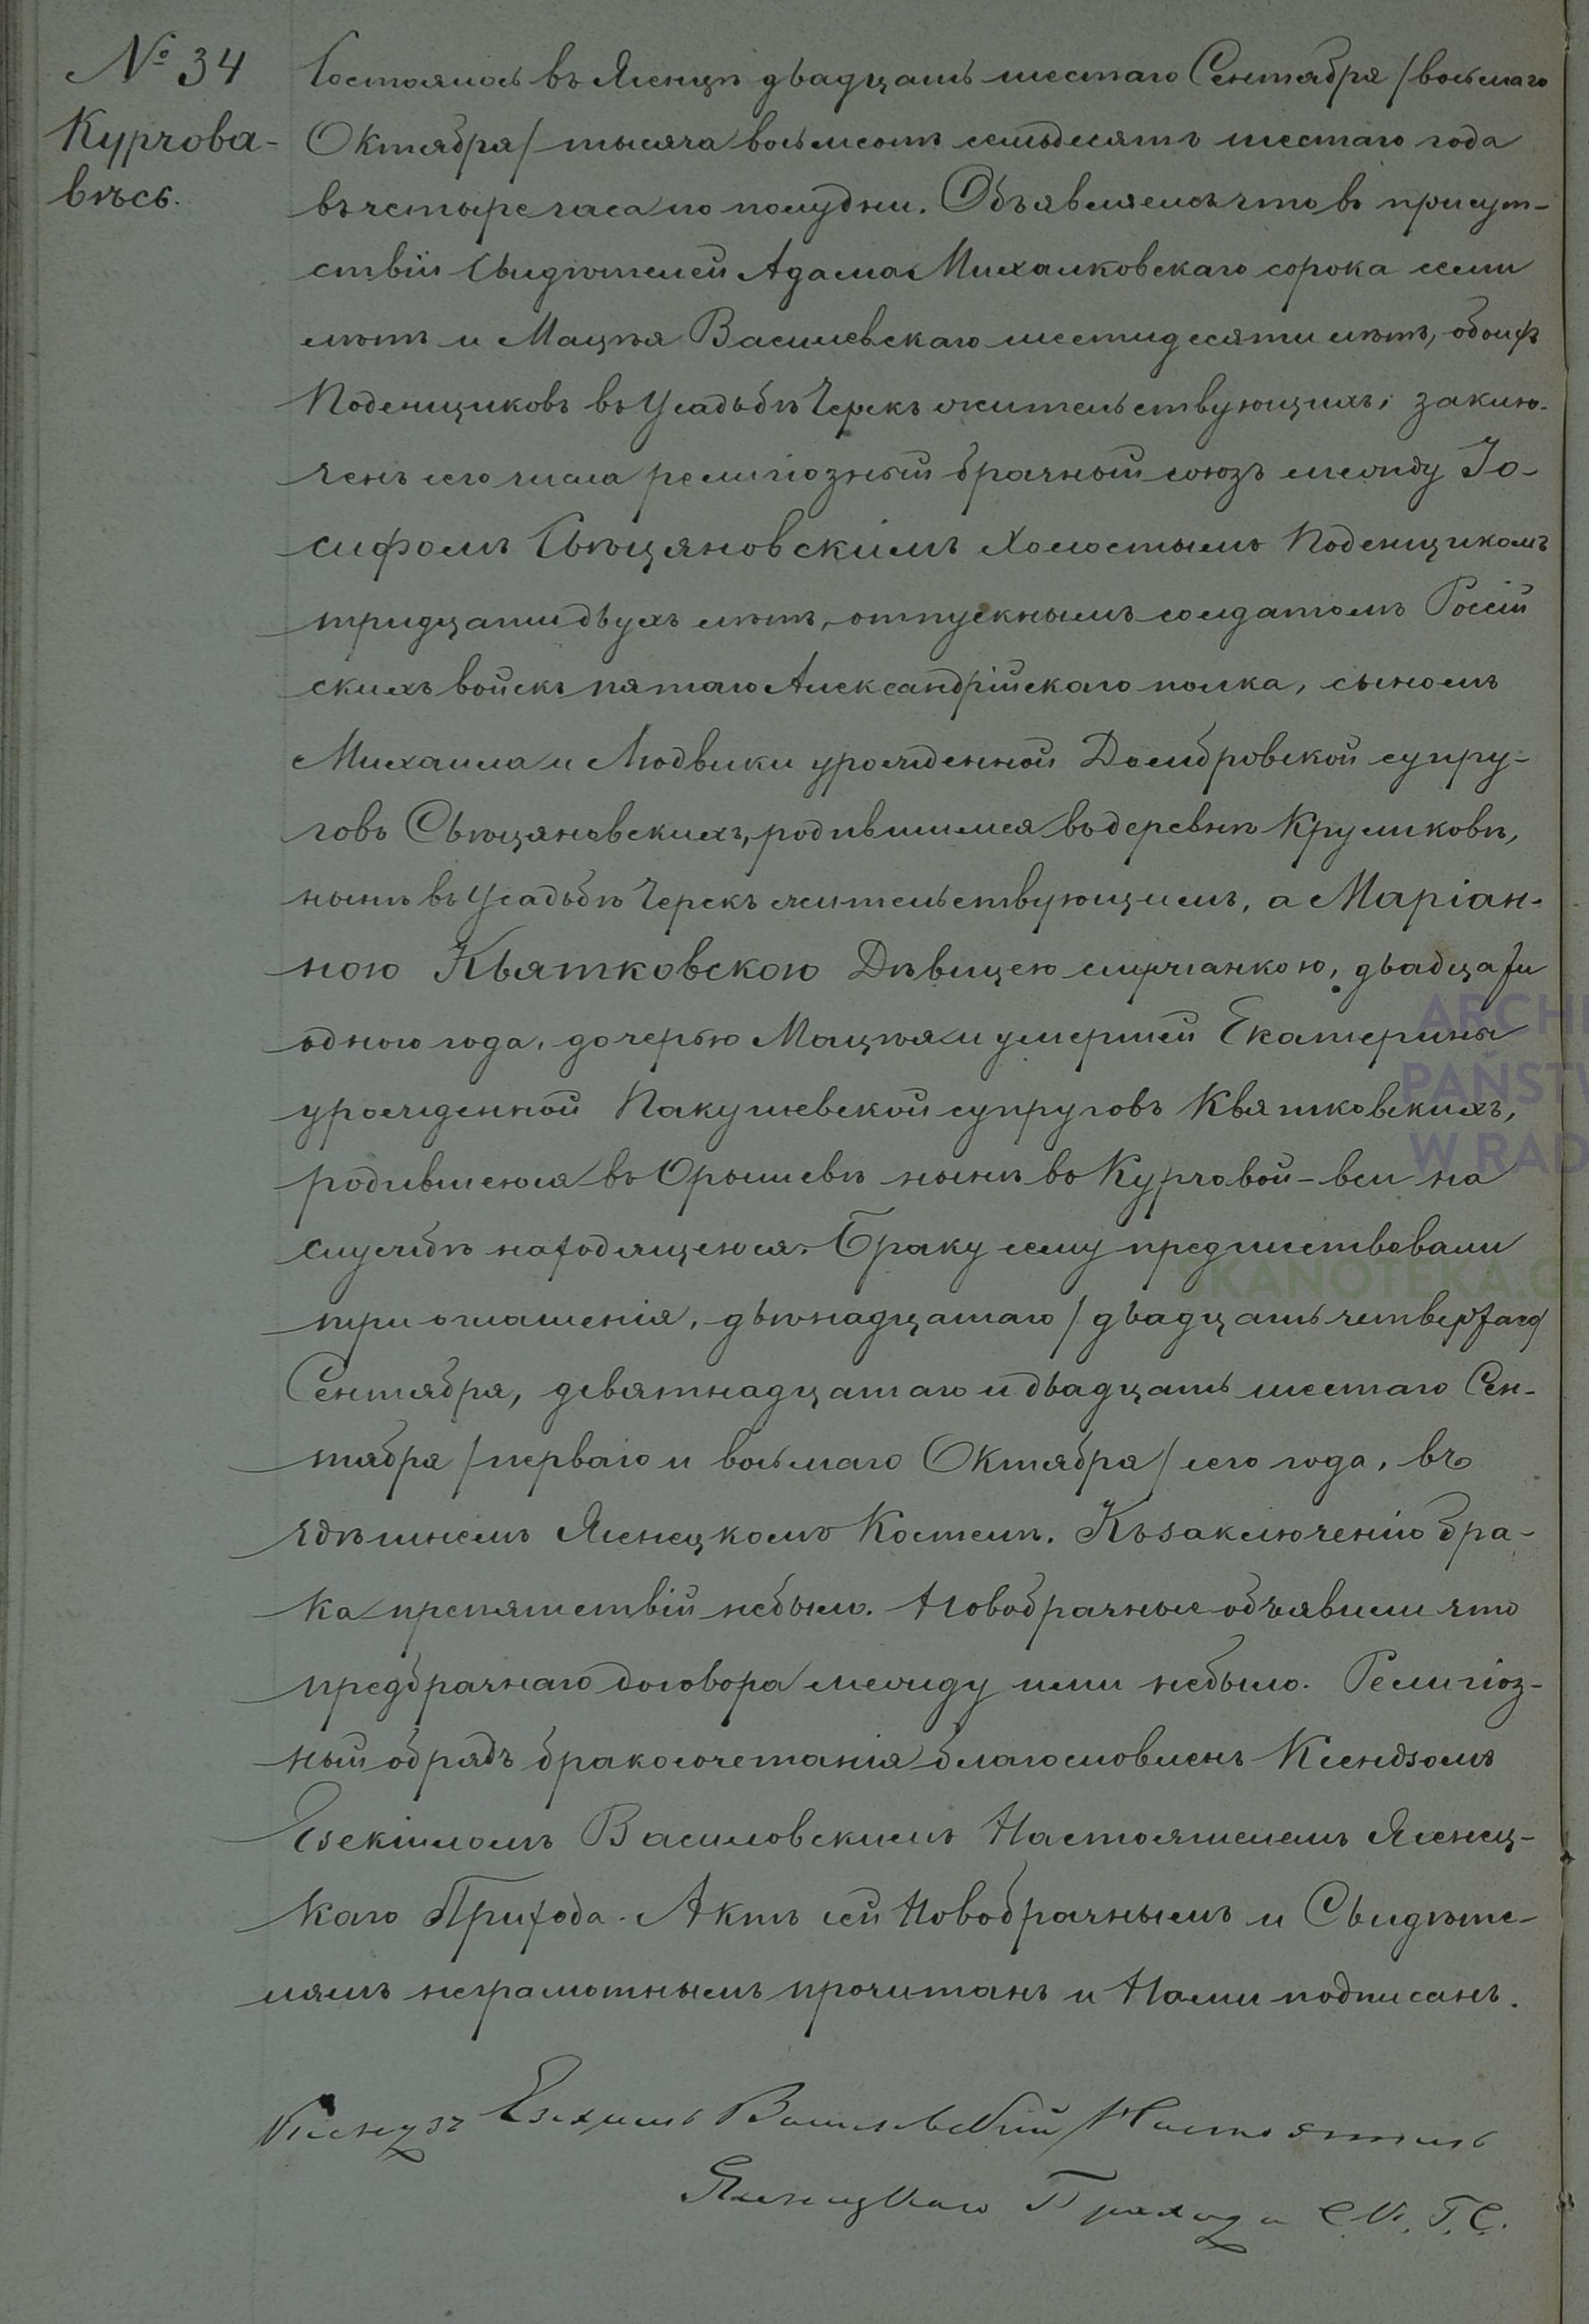 № 34
Курчова-
вѣсь.
Состоялось въ Ясенцѣ двадцать шестаго Сентября /восьмаго
Октября/ тысяча восьмсотъ семьдесятъ шестаго года
въ четыре часа по полудни. Объявляемъ что въ присут-
ствіи Свидѣтелей Адама Михалковскаго сорока семи
лѣтъ и Мацѣя Василевскаго шестидесяти лѣтъ, обоихъ
Поденщиковъ въ Усадьбѣ Черекъ жительствующихъ, заклю-
ченъ сего числа религіозный брачный союзъ между Іо-
сифомъ Свѣцяновскимъ Холостымъ Поденщикомъ
тридцати двухъ лѣтъ, отпускнымъ солдатомъ Россій
скихъ войскъ пятаго Александрійскаго полка, сыномъ
Михаила и Людвики урожденной Домбровской супру-
говъ Свѣцяновскихъ, родившимся въ деревнѣ Крушковѣ,
нынѣ въ Усадьбѣ Черекъ жительствующимъ, а Маріан-
ною Квятковскою Дѣвицею служанкою, двадцати
одного года, дочерью Мацѣя и умершей Екатерины
урожденной Пакушевской супруговъ Квятковскихъ,
родившеюся въ Орышевѣ нынѣ въ Курчовой-вси на
службѣ находящеюся. Браку сему предшествовали
три оглашенія, двѣнадцатаго /двадцать четвертаго/
Сентября, девятнадцатаго и двадцать шестаго Сен-
тября /перваго и восьмаго Октября/ сего года, въ
здѣшнемъ Ясенецкомъ Костелѣ. Къ заключенію бра-
ка препятствій небыло. Новобрачные объявили что
предбрачнаго договора между ими небыло. Религіоз-
ный обрядъ бракосочетанія благословленъ Ксендзомъ
Езекіиломъ Василовскимъ Настоятелемъ Ясенец-
каго Прихода. Актъ сей Новобрачнымъ и Свидѣте-
лямъ неграмотнымъ прочитанъ и Нами подписанъ.
Ксендзъ Езехіилъ Василовскій Настоятель
Ясенецкаго Прихода С. К. Г. С.
ARCHI
PAŃSTW
W RAD
SKANOTEKA.GE